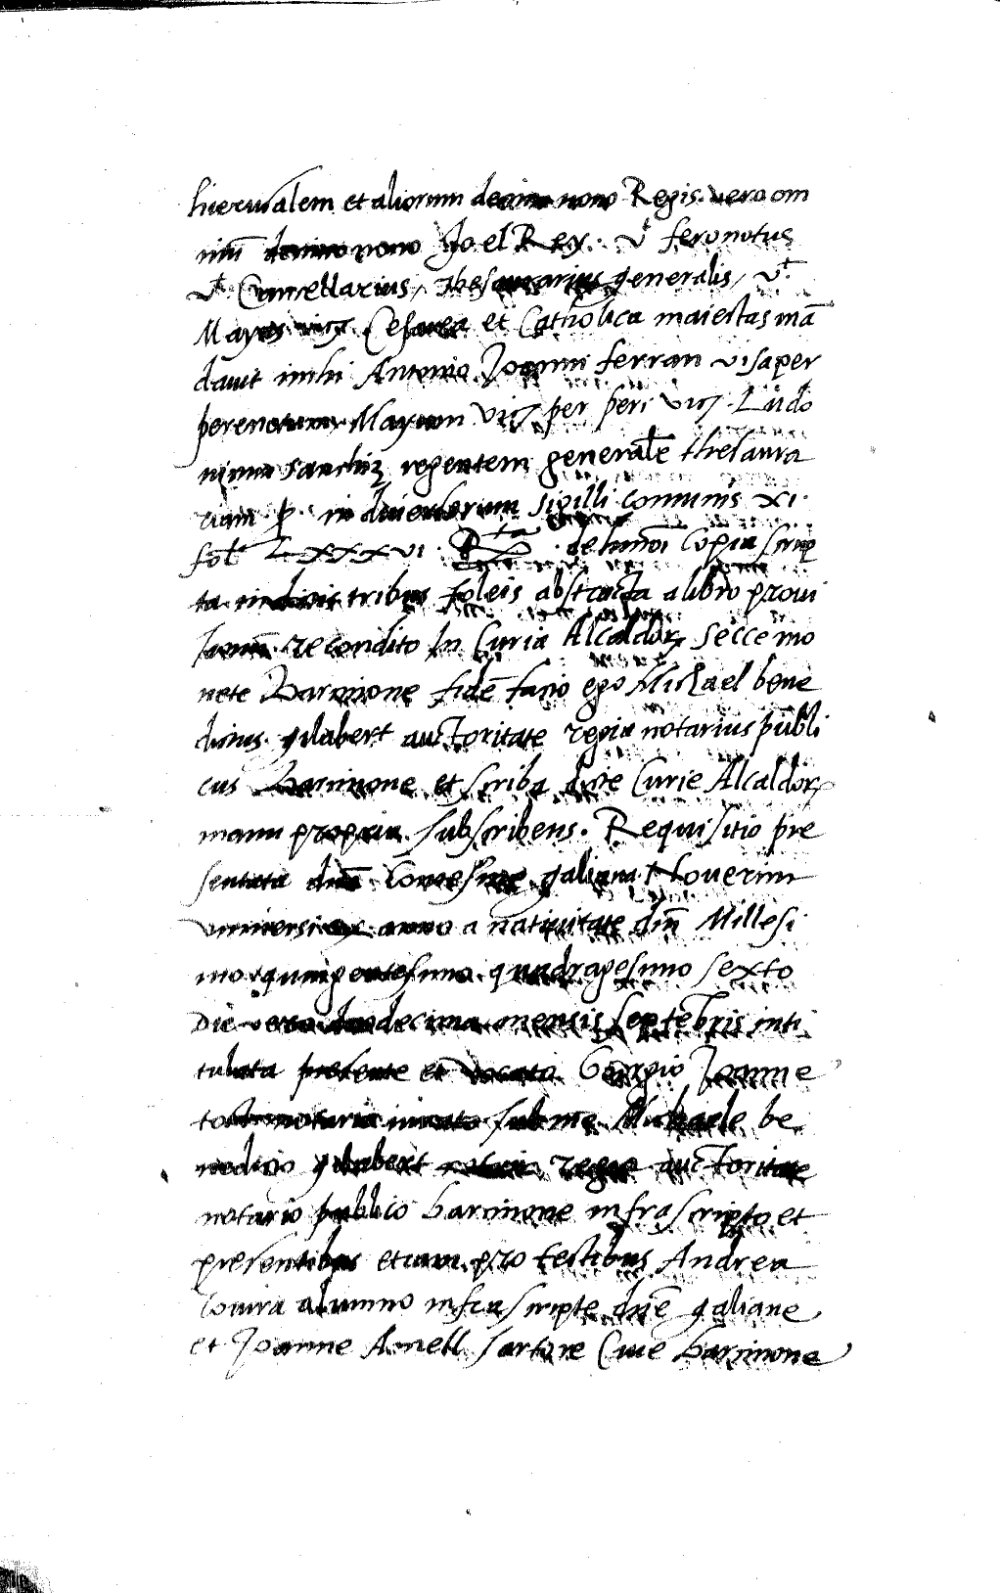 hierusalem et aliorum decimo nono Regis vero om
niū decimo nono Jo el Rey. vt feronotus
vt Cancellarius, thesaurarius generalis, vt
Mayus vics Cesarea et Catholica maiestas mā
davit mihi Antonio Joanni ferran visa per
perenotum Mayum vics per peri vics Ludo
vicum sanchiz regentem generalē thesaura
riam p. in diversorum sigilli comunis xi
fol Lxxxvi . Rta . dehmōi copia scrip
ta in tribus foleis abstracta a libro provi
sionū recondito In Curia Alcaldoꝝ Secce mo
nete Barcinone fidē facio ego Michael bene
dictus gilabert auctoritate regia notarius publi
cus barcinone et scriba dicte Curie Alcaldoꝝ
manu propria subscribens. Requisitio pre
sentata galiana Noverint
universi anno a nativitate dnī Millesi
mo quingentesimo quadragesimo sexto
Die vero duodecima mensis septēbris inti
tulata presente et vocato Georgio Joanne
notario iurato sub me Michaele be
nedicto gilabert regia auctoritate
notario publico barcinone infrascripto et
presentibus etiam pro testibus Andrea
alumno infrascripte dn̄e galiane
et Joanne Amell sartore Cive barcinone